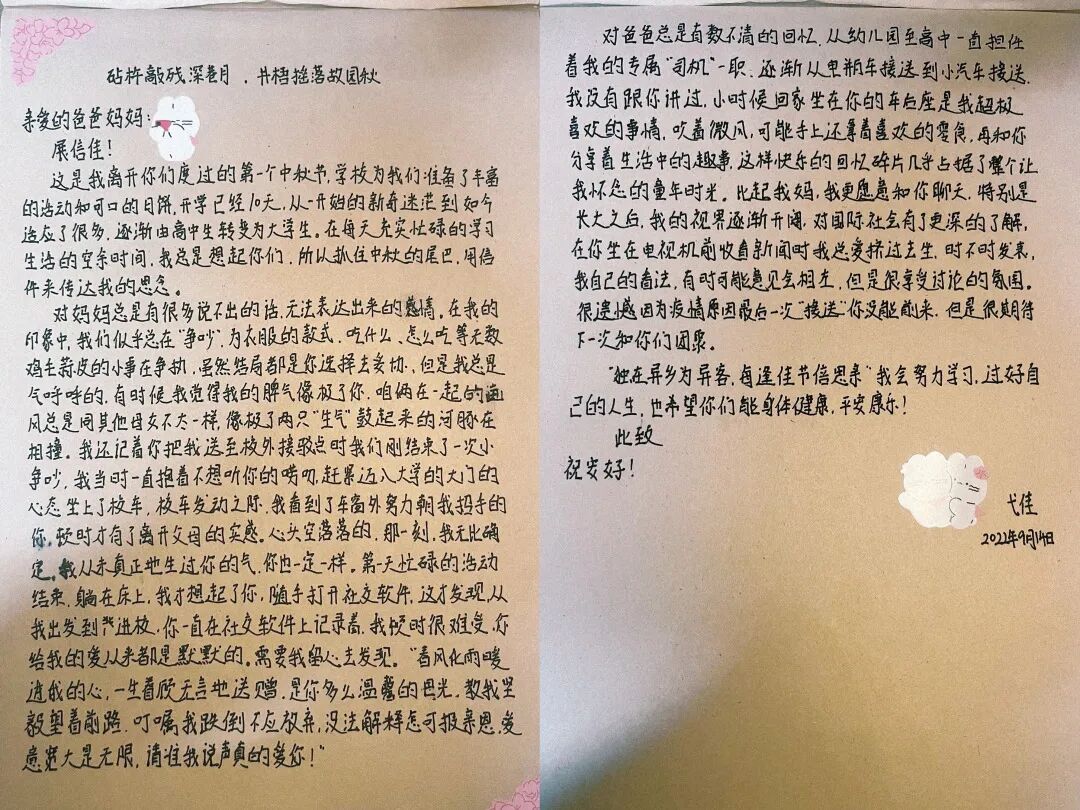 砧杵敲残深巷月,井梧摇落故园秋
亲爱的爸爸妈妈:
展信佳!
这是我离开你们度过的第一个中秋节,学校为我们准备了丰富
的活动和可口的月饼,开学已经10天,从一开始的新奇迷茫到如今
适应了很多,逐渐由高中生转变为大学生。在每天充实忙碌的学习
生活的空余时间,我总是想起你们,所以抓住中秋的尾巴,用信
件来传达我的思念。
对妈妈总是有很多说不出的话,无法表达出来的感情。在我的
印象中,我们似乎总在“争吵”,为衣服的款式、吃什么、怎么吃等无数
鸡毛蒜皮的小事在争执,虽然结局都是你选择去妥协,但是我总是
气呼呼的,有时候,我觉得我的脾气像极了你,咱俩在一起的画
风总是同其他母女不大一样,像极了两只“生气”鼓起来的河豚在
相撞。我还记着你把我送至校外接驳点时我们刚结束了一次小
争吵,我当时一直抱着不想听你的唠叨,赶紧迈入大学的大门的
心态坐上了校车,校车发动之际,我看到了车窗外努力朝我招手的
你,顿时才有了离开父母的实感。心头空落落的,那一刻,我无比确
定,我从未真正地生过你的气,你也一定一样。第一天忙碌的活动
结束,躺在床上,我才想起了你,随手打开社交软件,这才发现,从
我出发到进校,你一直在社交软件上记录着,我顿时很难受,你
给我的爱从来都是默默的。需要我留心去发现。“春风化雨暖
透我的心,一生眷顾无言地送赠,是你多么温馨的目光,教我坚
毅望着前路,叮嘱我跌倒不应放弃,没法解释怎可报亲恩,爱
意宽大是无限,请准我说声真的爱你!”
对爸爸总是有数不清的回忆,从幼儿园至高中一直担任
着我的专属“司机”一职,逐渐从电瓶车接送到小汽车接送,
我没有跟你讲过,小时候回家坐在你的车后座是我超级
喜欢的事情,吹着微风,可能手上还拿着喜欢的零食,再和你
分享着生活中的趣事,这样快乐的回忆碎片几乎占据了整个让
我怀念的童年时光。比起我妈,我更愿意和你聊天,特别是
长大之后,我的视界逐渐开阔,对国际社会有了更深的了解,
在你坐在电视机前收看新闻时我总爱挤过去坐,时不时发表,
我自己的看法,有时可能意见会相左,但是很享受讨论的氛围。
很遗憾因为疫情原因最后一次“接送”你没能前来,但是很期待
下一次和你们团聚。
“独在异乡为异客,每逢佳节倍思亲”我会努力学习,过好自
己的人生,也希望你们能身体健康,平安康乐!
此致
祝安好!
弋佳
2022年9月14日